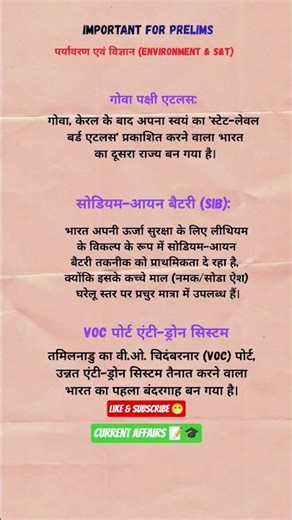 IMPORTANT FOR PRELIMS
पर्यावरण एवं विज्ञान (ENVIRONMENT & S&T)
गोवा पक्षी एटलस:
गोवा, केरल के बाद अपना स्वयं का 'स्टेट-लेवल
बर्ड एटलस' प्रकाशित करने वाला भारत
का दूसरा राज्य बन गया है।
सोडियम-आयन बैटरी (SIB):
भारत अपनी ऊर्जा सुरक्षा के लिए लीथियम
के विकल्प के रूप में सोडियम-आयन
बैटरी तकनीक को प्राथमिकता दे रहा है,
क्योंकि इसके कच्चे माल (नमक/सोडा ऐश)
घरेलू स्तर पर प्रचुर मात्रा में उपलब्ध हैं।
VOC पोर्ट एंटी-ड्रोन सिस्टम
तमिलनाडु का वी.ओ. चिदंबरनार (VOC) पोर्ट,
उन्नत एंटी-ड्रोन सिस्टम तैनात करने वाला
भारत का पहला बंदरगाह बन गया है।
LIKE & SUBSCRIBE 😁
CURRENT AFFAIRS 📝🎓